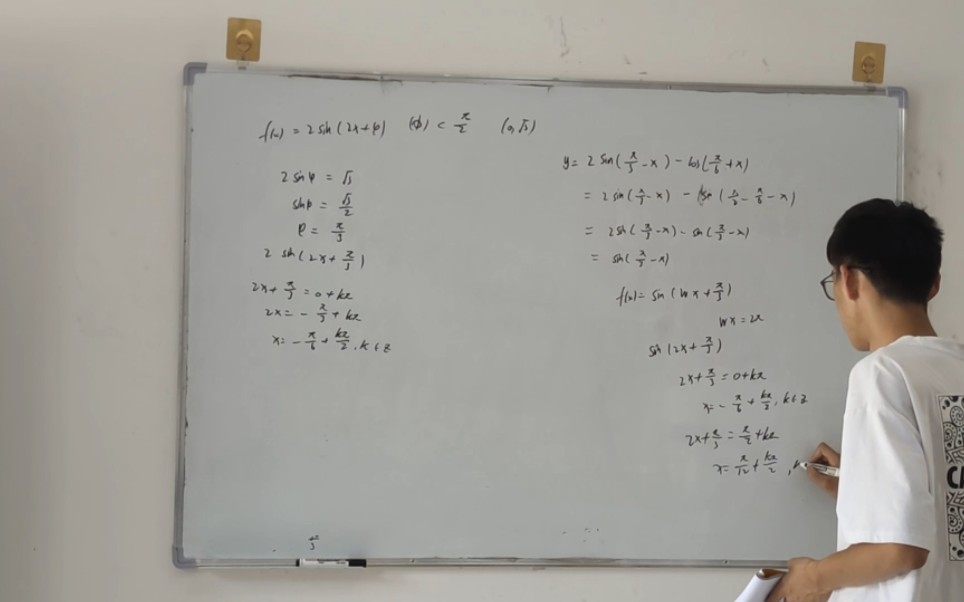 f(x) = 2 sin(2x+φ) |φ| < π/2 (0,√3)
2 sinφ = √3
sinφ = √3/2
φ = π/3
2 sin(2x+π/3)
2x+π/3 = 0+kπ
2x = -π/3+kπ
x = -π/6+kπ/2, k∈Z
y = 2 sin(π/3-x) - cos(π/6+x)
= 2 sin(π/3-x) -
= 2sin(π/3-x) - sin(π/3-x)
= sin(π/3-x)
f(x) = sin(wx+π/3)
wx = 2x
sin(2x+π/3)
2x+π/3 = 0+kπ
x = -π/6+kπ/2, k∈Z
2x+π/3 = π/2+kπ
x = π/12+kπ/2, k